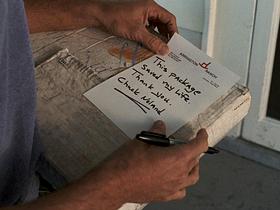 This package
saved my life.
Thank you.
Chuck Noland